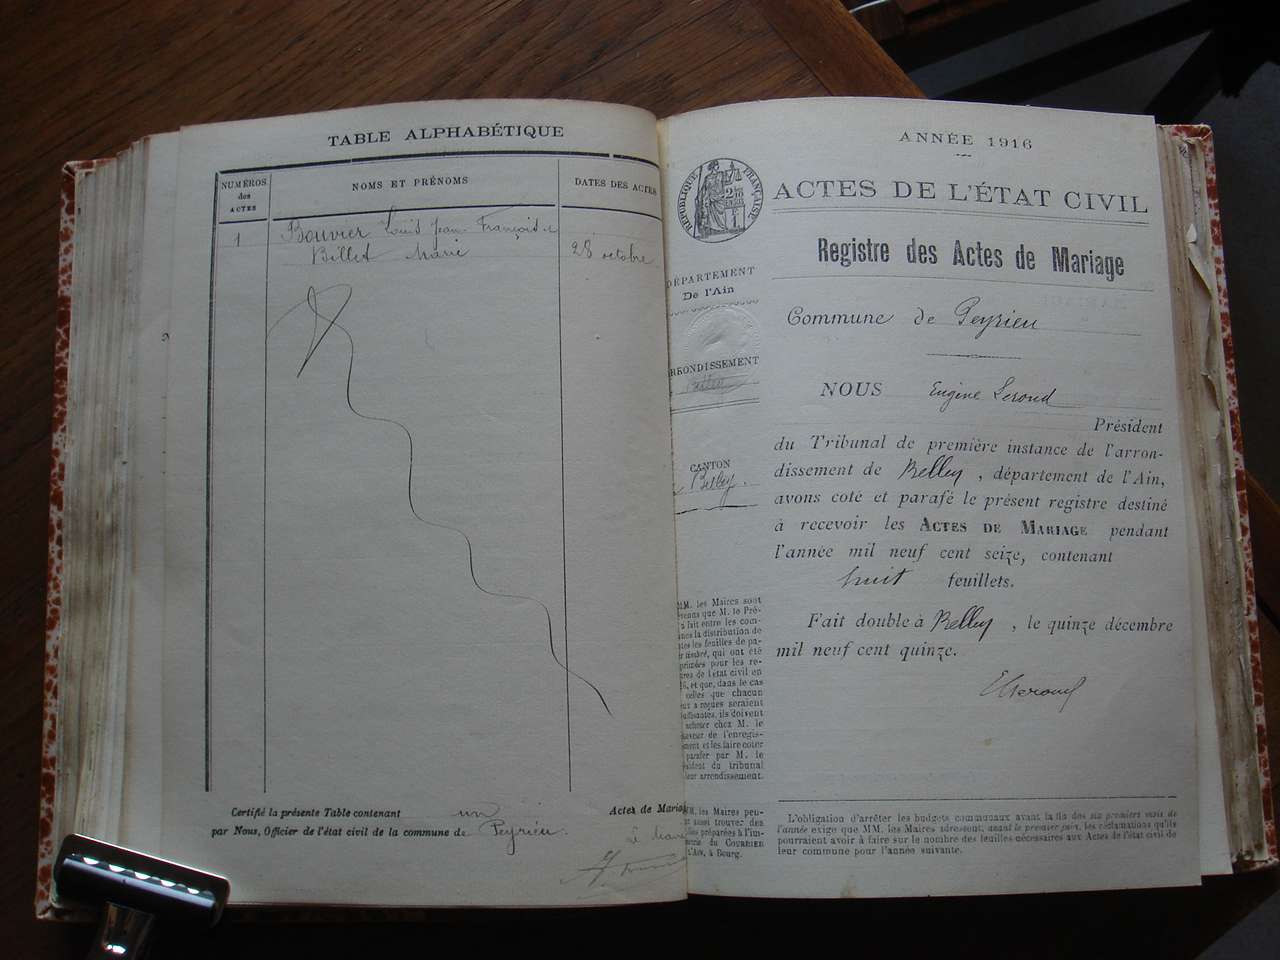 TABLE ALPHABÉTIQUE
NUMÉROS
des
ACTES
NOMS ET PRÉNOMS
DATES DES ACTES
1
Bouvier Louis Jean François et
Billet Marie
28 octobre
Certifié la présente Table contenant un Actes de Mariage
par Nous, Officier de l'état civil de la commune de Peyrieu.
Le Maire
ANNÉE 1916
RÉPUBLIQUE FRANÇAISE
ACTES DE L'ÉTAT CIVIL
Registre des Actes de Mariage
DÉPARTEMENT
De l'Ain
ARRONDISSEMENT
Belley
CANTON
Belley.
Commune de Peyrieu
NOUS Eugène Leroud
Président
du Tribunal de première instance de l'arron-
dissement de Belley, département de l'Ain,
avons coté et parafé le présent registre destiné
à recevoir les ACTES DE MARIAGE pendant
l'année mil neuf cent seize, contenant
huit feuillets.
Fait double à Belley, le quinze décembre
mil neuf cent quinze.
MM. les Maires sont
que M. le Pré-
fait entre les com-
la distribution de
les feuilles de pa-
timbré, qui ont été
pour les re-
de l'état civil en
et que, dans le cas
celles que chacun
a reçues seraient
ils doivent
chez M. le
de l'enregis-
et les faire coter
parafer par M. le
du tribunal
leur arrondissement.
MM. les Maires peu-
aussi trouver des
préparées à l'im-
du COURRIER
l'Ain, à Bourg.
L'obligation d'arrêter les budgets communaux avant la fin des six premiers mois de
l'année exige que MM. les Maires adressent, avant le premier juin, les réclamations qu'ils
pourraient avoir à faire sur le nombre des feuilles nécessaires aux Actes de l'état civil de
leur commune pour l'année suivante.